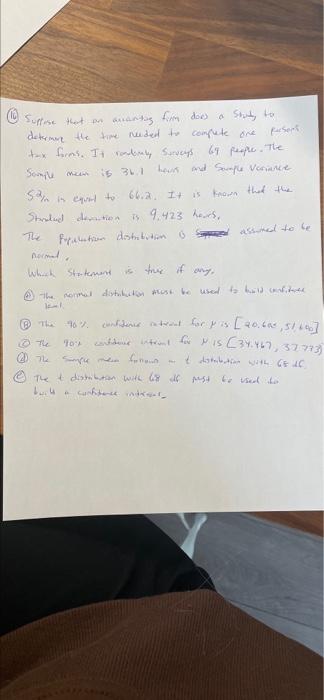 (16) Suppose that an accounting firm does a study to
determine the time needed to complete one person's
tax forms. It randomly surveys 69 people. The
sample mean is 36.1 hours and sample variance
S²/n is equal to 66.2. It is known that the
Standard deviation is 9.423 hours.
The Population distribution is assumed to be
normal.
Which Statement is true if any.
(a) The normal distribution must be used to build confidence
level.
(B) The 90% confidence interval for μ is [20.600, 51,600]
(C) The 90% confidence interval for μ is [34.467, 37.773]
(d) The Sample mean follows a t distribution with 68 df.
(e) The t distribution with 68 df must be used to
build a confidence interval.